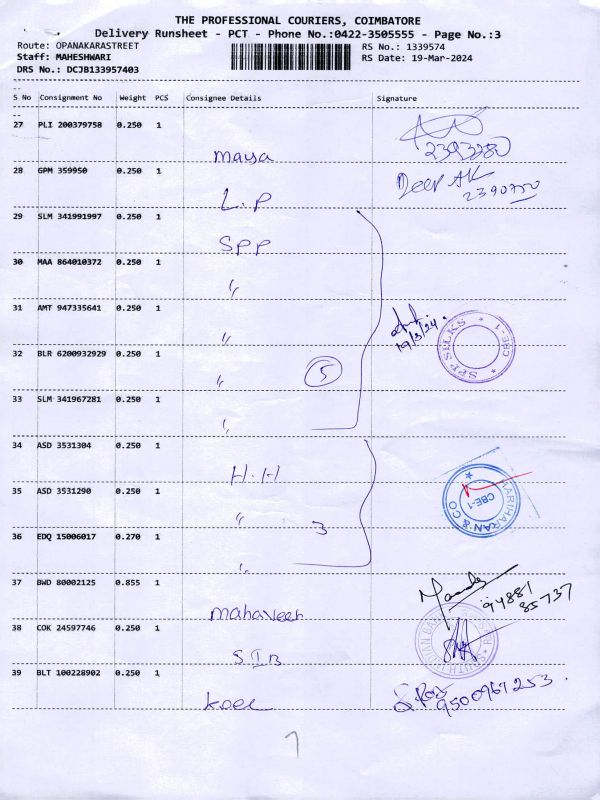 THE PROFESSIONAL COURIERS, COIMBATORE
Delivery Runsheet - PCT - Phone No.:0422-3505555 - Page No.:3
Route: OPANAKARASTREET RS No.: 1339574
Staff: MAHESHWARI RS Date: 19-Mar-2024
DRS No.: DCJB133957403
S No Consignment No Weight PCS Consignee Details Signature
27 PLI 200379758 0.250 1
maya 2393280
28 GPM 359950 0.250 1
L.P 2390750
29 SLM 341991997 0.250 1
SPP
30 MAA 864010372 0.250 1
"
31 AMT 947335641 0.250 1
" 19/3/24 SPP SILKS * CBE-1 *
32 BLR 6200932929 0.250 1
" 5
33 SLM 341967281 0.250 1
"
34 ASD 3531304 0.250 1
H.H
35 ASD 3531290 0.250 1
" 3 HARIHARAN & CO CBE-1
36 EDQ 15006017 0.270 1
"
37 BWD 80002125 0.855 1
Mahaveer 94881 85737
38 COK 24597746 0.250 1
SIB SOUTH INDIAN BANK
39 BLT 100228902 0.250 1
9500967253
7